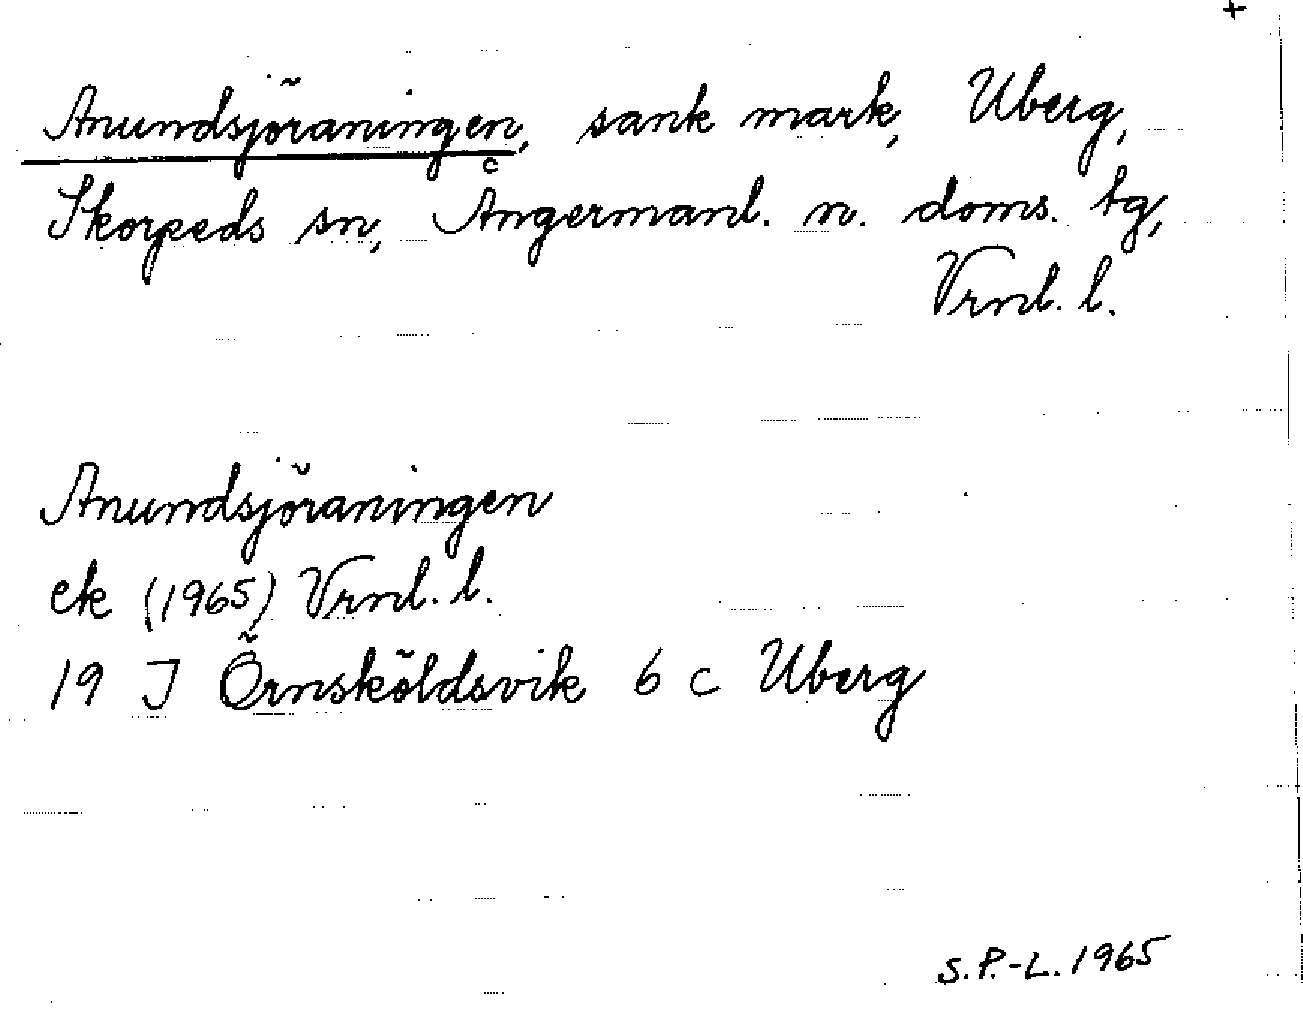 +
Anundsjöraningen, sank mark, Uberg,
Skorpeds sn, Ångermanl. n. doms. tg,
Vrnl. l.
Anundsjöraningen
ek (1965) Vrnl. l.
19 J Örnsköldsvik 6 c Uberg
S.P.-L. 1965